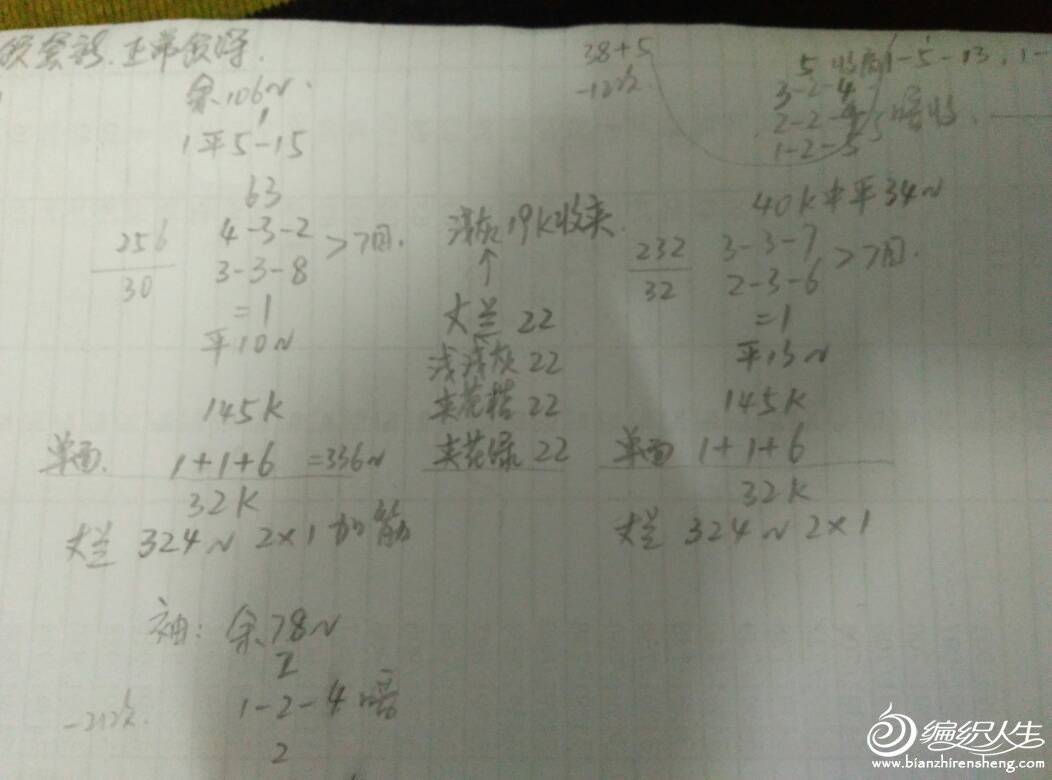 余106N.
1平5-15
63
256
30
4-3-2
3-3-8
>7回.
=1
平10N
145K
单面. 1+1+6 =336N
32K
324N 2×1 加筋
浅灰19K收夹.
↑
22
浅浅灰 22
夹花桔 22
夹花绿 22
38+5
5 1-5-13, 1-
3-2-4
2-2-4
1-2-5
40K中平34N
232
32
3-3-7
2-3-6
>7回.
=1
平13N
145K
单面 1+1+6
32K
324N 2×1
袖: 余78N
1-2-4
2
编织人生
www.bianzhirensheng.com